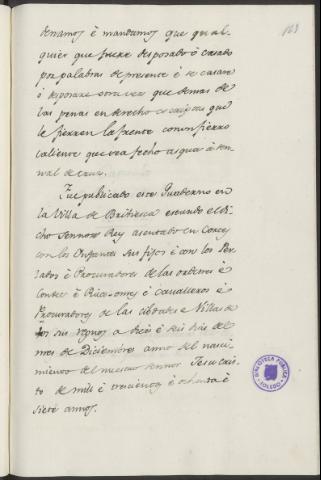 163
denamos è mandamos que qual
quier que fuere desposado ò casado
por palabras de presente è se casare
ò desposare otra vez que demas de
las penas en derecho que
le fierren la frente con un fierro
caliente que sea fecho a
nal de cruz.
Fue publicado este Quaderno en
la Villa de Bribiesca estando el di
cho Sennor Rey asentado en Cortes
con los Infantes sus fijos è con los Per
lados è Procuradores de las ordenes è
Condes è Ricos omes è Cavalleros è
Procuradores de las cibdades è Villas de
los sus regnos a diez è seis dias del
mes de Diciembre anno del nasci
miento del nuestro Sennor Jesu Cris
to de mill è trecientos è ochenta è
siete annos.
BIBLIOTECA PÚBLICA
TOLEDO